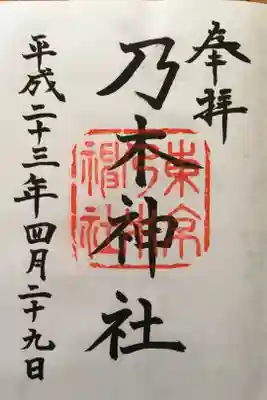 奉拝
乃木神社
東京乃木神社
平成二十三年四月二十九日